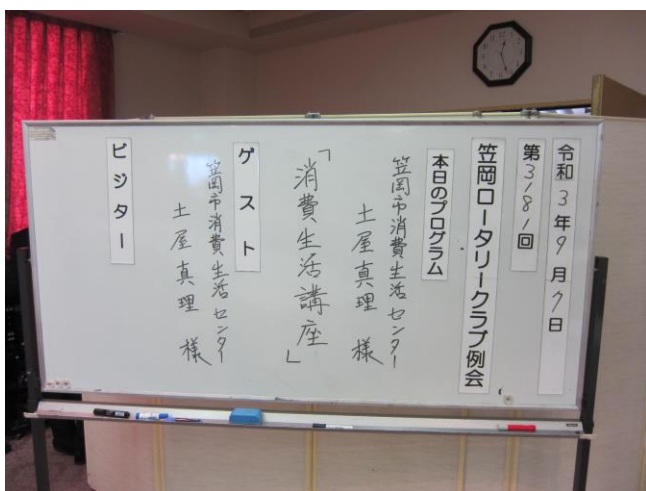 令和3年9月7日
第3181回
笠岡ロータリークラブ例会
本日のプログラム
笠岡市消費生活センター
土屋真理 様
「消費生活講座」
ゲスト
笠岡市消費生活センター
土屋真理 様
ビジター